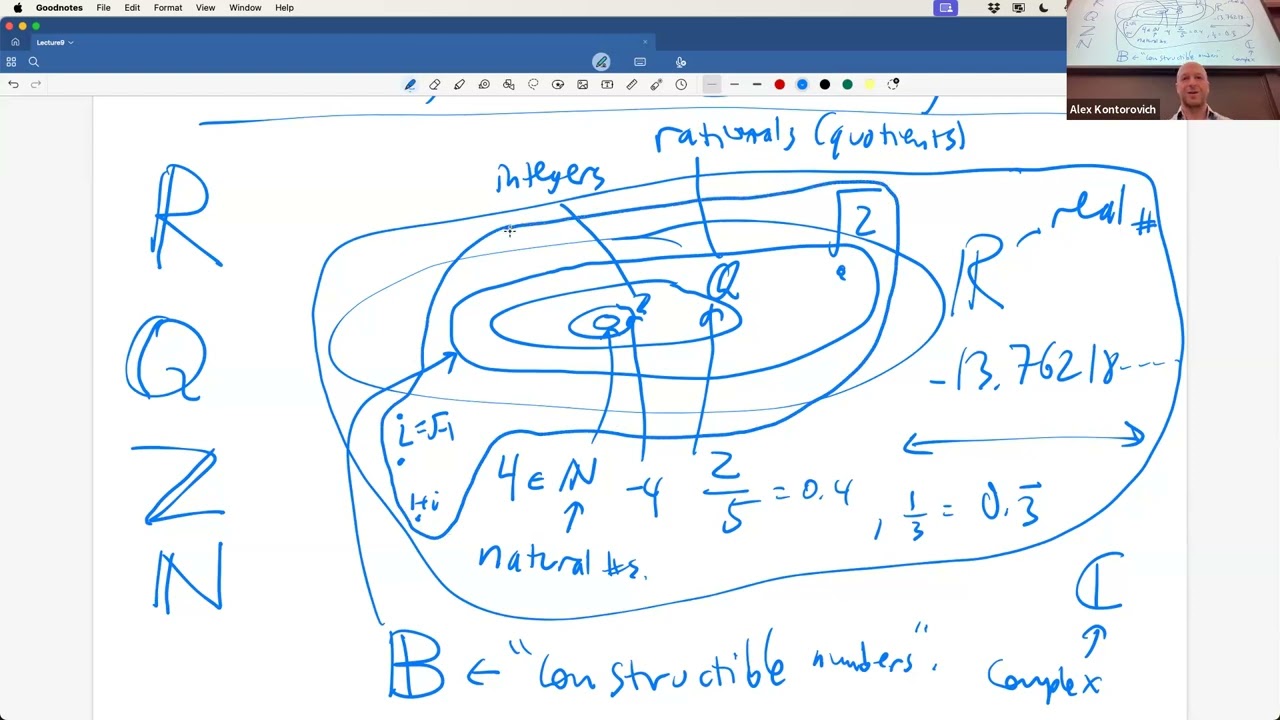 Goodnotes File Edit Format View Window Help
Lecture9
Alex Kontorovich
rationals (quotients)
integers
R
√2
real #
ℝ
Q
ℚ
ℤ
-13.76218----
i=√-1
1+i
Z
4 ∈ ℕ
-4
2/5 = 0.4, 1/3 = 0.3̅
natural #s.
N
ℂ
𝔹 ← "constructible numbers".
complex